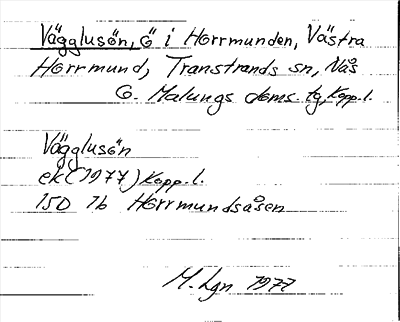 Vägglusön, ö i Horrmunden, Västra
Horrmund, Transtrands sn, Nås
o. Malungs doms. tg, Kopp. l.
Vägglusön
ek (1977) Kopp. l.
15D 7b Horrmundsåsen
M. Lgn 1977